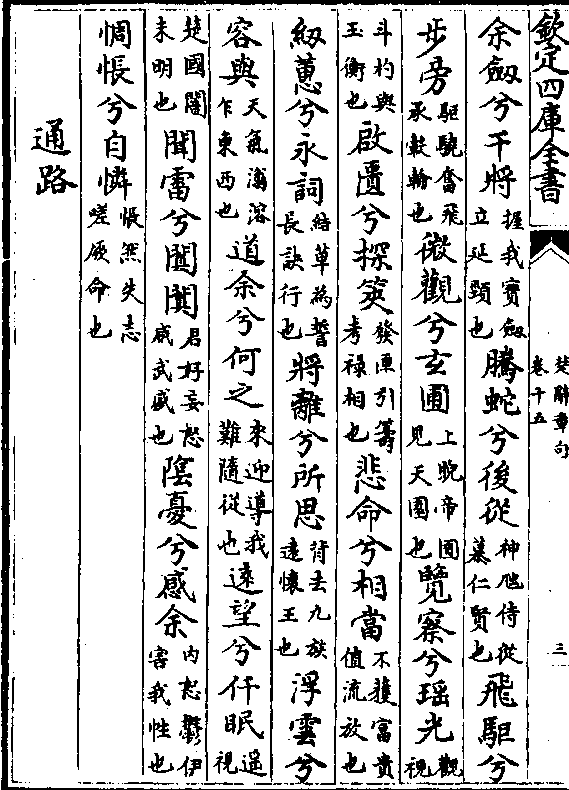 欽定四庫全書
楚辭章句
卷十五
三
余劒兮干將握我寶劒立延頸也騰蛇兮後從神虺侍從慕仁賢也飛駏兮
步旁駏驉奮飛承轂輪也微觀兮玄圃上睨帝圃見天園也覽察兮瑶光觀視
斗杓與玉衡也啟匱兮探筴發匣引籌考禄相也悲命兮相當不獲富貴值流放也
紉蕙兮永詞結草為誓長訣行也將離兮所思背去九族逺懷王也浮雲兮
容與天氣瀰溶乍東西也道余兮何之來迎導我難隨從也逺望兮仟眠遥視
楚國闇未明也聞雷兮闐闐君好妄怒威武盛也陰憂兮感余内怒鬱伊害我性也
惆悵兮自憐悵然失志嗟厥命也
通路